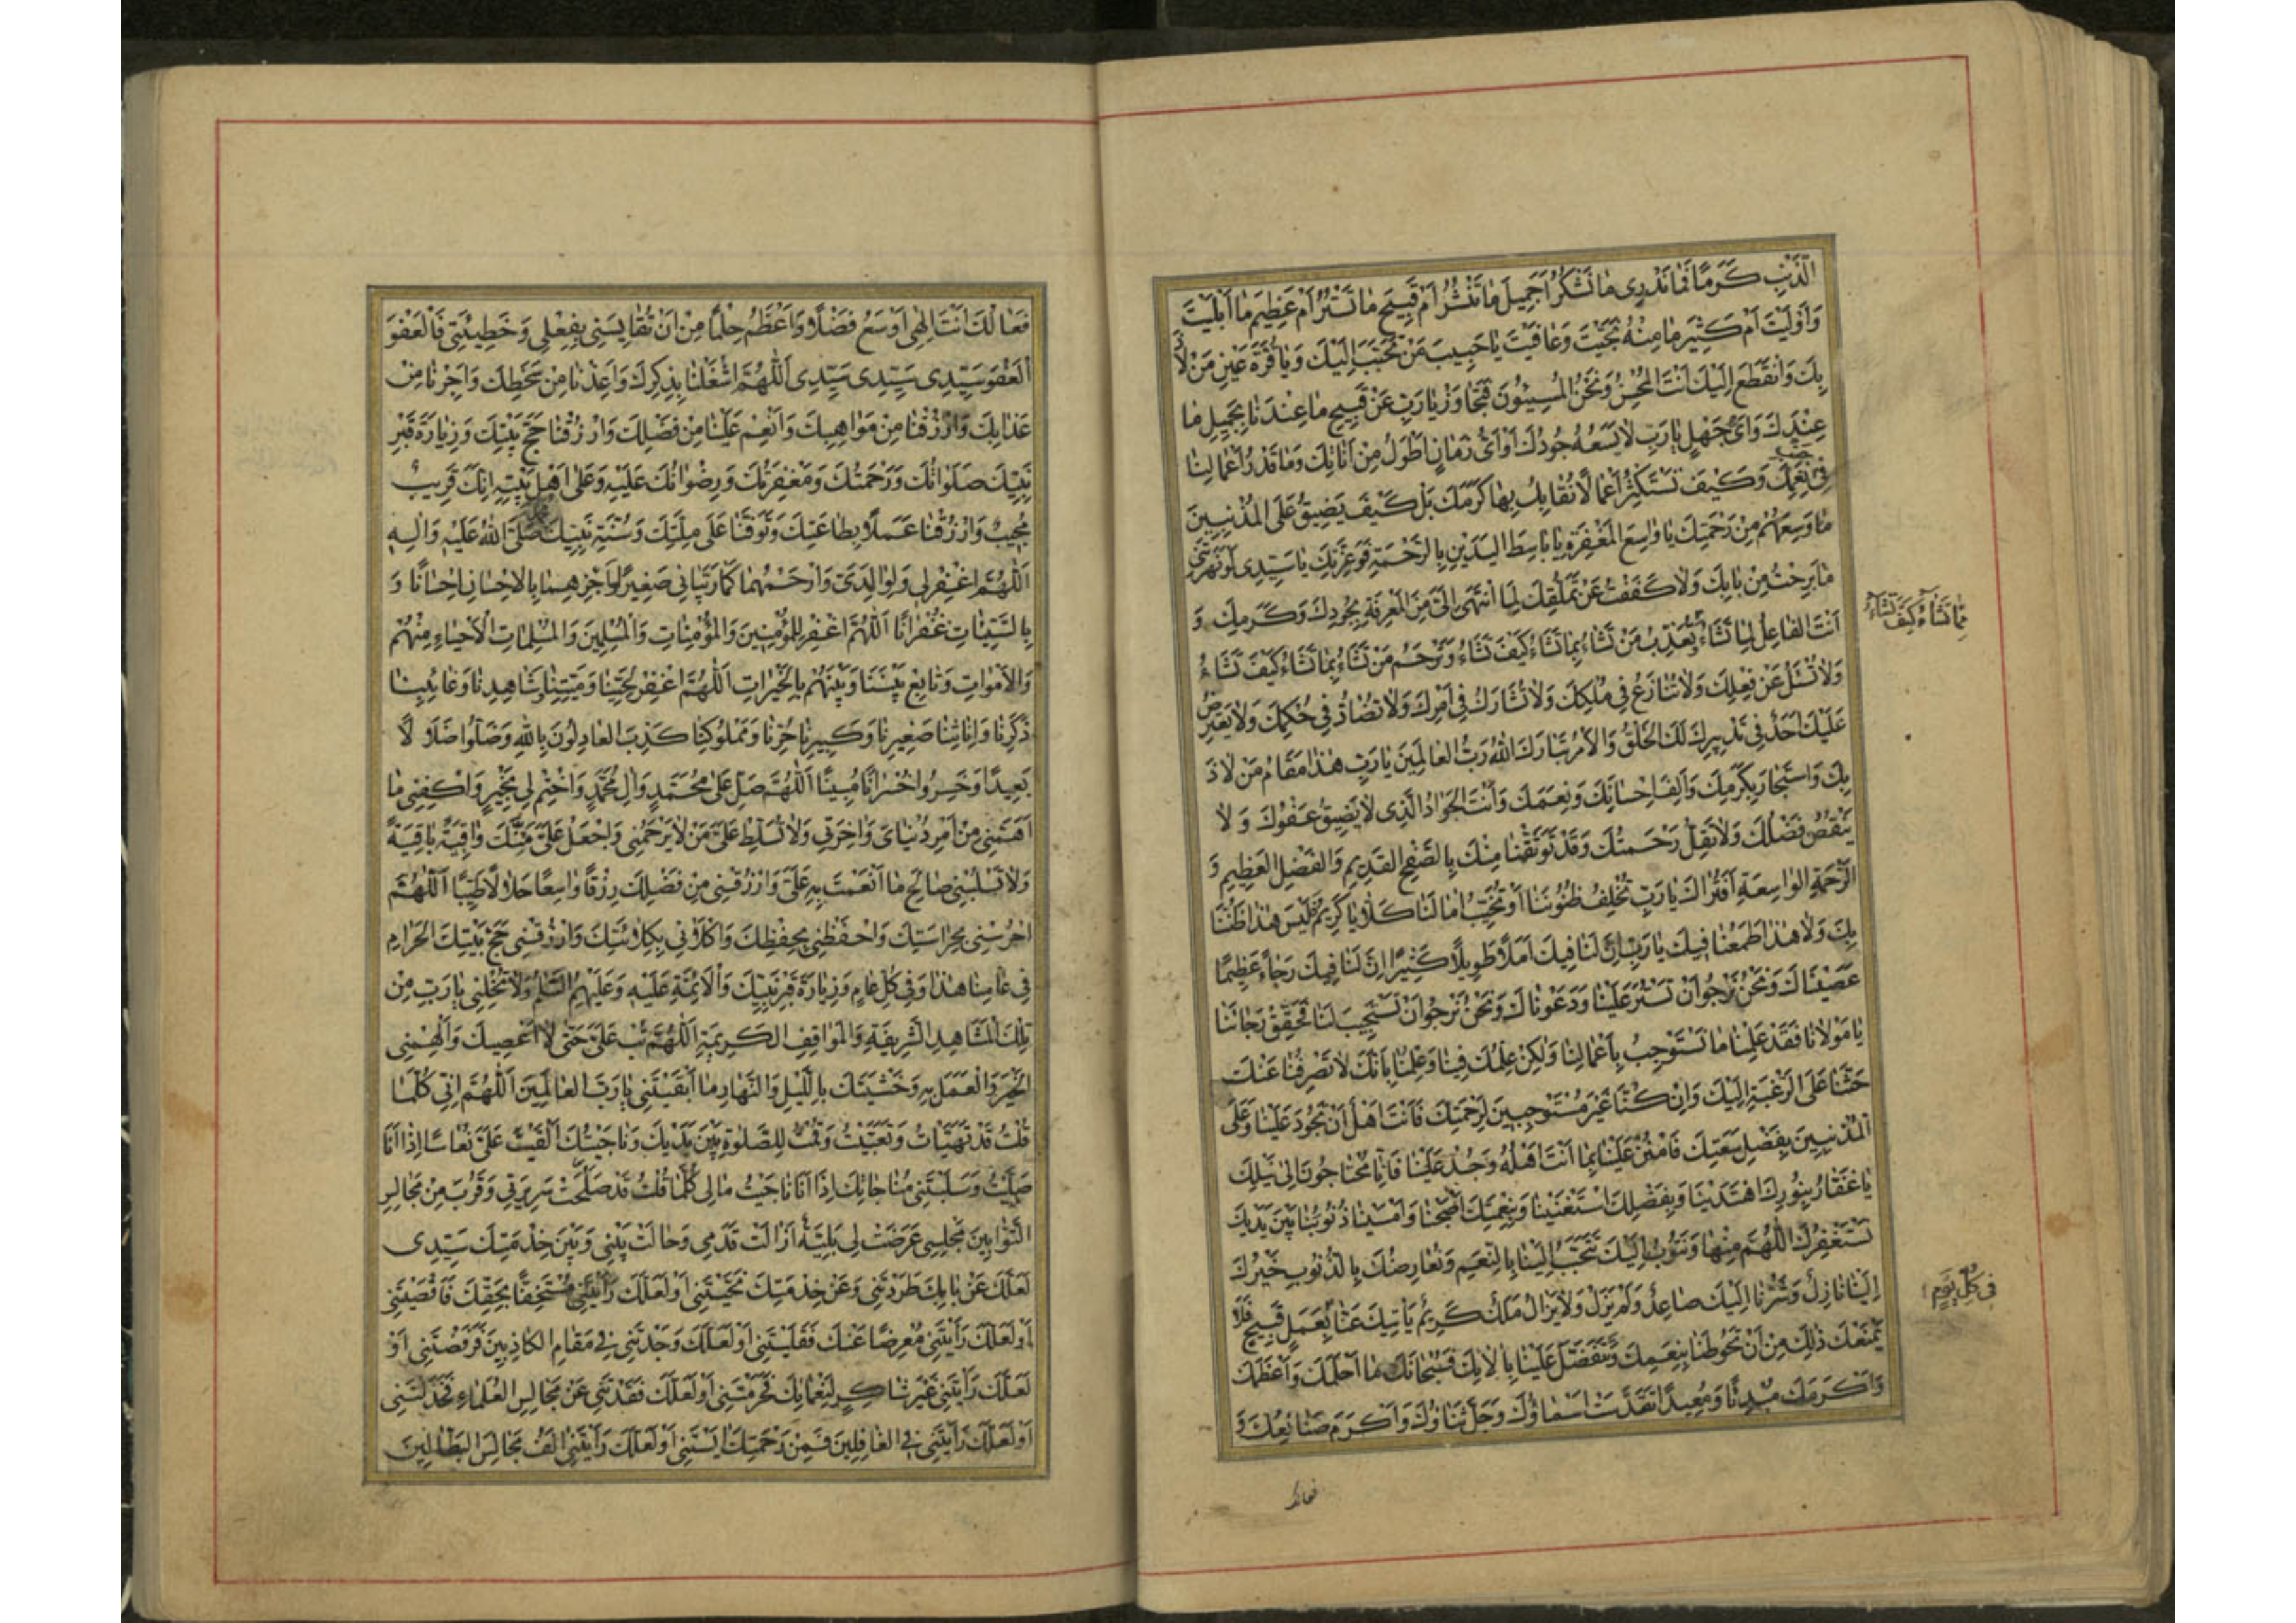 الذَّنْبِ كَرَمًا فَمَا نَدْرِى مَا نَشْكُرُ اَجَمِيلَ مَا تَنْشُرُ اَمْ قَبِيحَ مَا تَسْتُرُ اَمْ عَظِيمَ مَا اَبْلَيْتَ
وَاَوْلَيْتَ اَمْ كَثِيرَ مَا مِنْهُ نَجَّيْتَ وَعَافَيْتَ يَا حَبِيبَ مَنْ تَحَبَّبَ اِلَيْكَ وَيَا قُرَّةَ عَيْنِ مَنْ لَاذَ
بِكَ وَانْقَطَعَ اِلَيْكَ اَنْتَ الْمُحْسِنُ وَنَحْنُ الْمُسِيئُونَ فَتَجَاوَزْ يَا رَبِّ عَنْ قَبِيحِ مَا عِنْدَنَا بِجَمِيلِ مَا
عِنْدَكَ وَاَىُّ جَهْلٍ يَا رَبِّ لَا يَسَعُهُ جُودُكَ اَوْ اَىُّ زَمَانٍ اَطْوَلُ مِنْ اَنَاتِكَ وَمَا قَدْرُ اَعْمَالِنَا
فِى جَنْبِ نِعَمِكَ وَكَيْفَ نَسْتَكْثِرُ اَعْمَالًا نُقَابِلُ بِهَا كَرَمَكَ بَلْ كَيْفَ يَضِيقُ عَلَى الْمُذْنِبِينَ
مَا وَسِعَهُمْ مِنْ رَحْمَتِكَ يَا وَاسِعَ الْمَغْفِرَةِ يَا بَاسِطَ الْيَدَيْنِ بِالرَّحْمَةِ فَوَعِزَّتِكَ يَا سَيِّدِى لَوْ نَهَرْتَنِى
مَا بَرِحْتُ مِنْ بَابِكَ وَلَا كَفَفْتُ عَنْ تَمَلُّقِكَ لِمَا انْتَهَى اِلَىَّ مِنَ الْمَعْرِفَةِ بِجُودِكَ وَكَرَمِكَ وَ
اَنْتَ الْفَاعِلُ لِمَا تَشَاءُ تُعَذِّبُ مَنْ تَشَاءُ بِمَا تَشَاءُ كَيْفَ تَشَاءُ وَتَرْحَمُ مَنْ تَشَاءُ بِمَا تَشَاءُ كَيْفَ تَشَاءُ
بِمَا تَشَاءُ كَيْفَ تَشَاءُ
وَلَا تُسْئَلُ عَنْ فِعْلِكَ وَلَا تُنَازَعُ فِى مُلْكِكَ وَلَا تُشَارَكُ فِى اَمْرِكَ وَلَا تُضَادُّ فِى حُكْمِكَ وَلَا يَعْتَرِضُ
عَلَيْكَ اَحَدٌ فِى تَدْبِيرِكَ لَكَ الْخَلْقُ وَالْاَمْرُ تَبَارَكَ اللهُ رَبُّ الْعَالَمِينَ يَا رَبِّ هٰذَا مَقَامُ مَنْ لَاذَ
بِكَ وَاسْتَجَارَ بِكَرَمِكَ وَاَلِفَ اِحْسَانَكَ وَنِعَمَكَ وَاَنْتَ الْجَوَادُ الَّذِى لَا يَضِيقُ عَفْوُكَ وَ لَا
يَنْقُصُ فَضْلُكَ وَلَا تَقِلُّ رَحْمَتُكَ وَقَدْ تَوَثَّقْنَا مِنْكَ بِالصَّفْحِ الْقَدِيمِ وَالْفَضْلِ الْعَظِيمِ وَ
الرَّحْمَةِ الْوَاسِعَةِ اَفَتُرَاكَ يَا رَبِّ تُخْلِفُ ظُنُونَنَا اَوْ تُخَيِّبُ اٰمَالَنَا كَلَّا يَا كَرِيمُ فَلَيْسَ هٰذَا ظَنُّنَا
بِكَ وَلَا هٰذَا طَمَعُنَا فِيكَ يَا رَبِّ اِنَّ لَنَا فِيكَ اَمَلًا طَوِيلًا كَثِيرًا اِنَّ لَنَا فِيكَ رَجَاءً عَظِيمًا
عَصَيْنَاكَ وَنَحْنُ نَرْجُو اَنْ تَسْتُرَ عَلَيْنَا وَدَعَوْنَاكَ وَنَحْنُ نَرْجُو اَنْ تَسْتَجِيبَ لَنَا فَحَقِّقْ رَجَائَنَا
يَا مَوْلَانَا فَقَدْ عَلِمْنَا مَا نَسْتَوْجِبُ بِاَعْمَالِنَا وَلٰكِنْ عِلْمُكَ فِينَا وَعِلْمُنَا بِاَنَّكَ لَا تَصْرِفُنَا عَنْكَ
حَثَّنَا عَلَى الرَّغْبَةِ اِلَيْكَ وَاِنْ كُنَّا غَيْرَ مُسْتَوْجِبِينَ لِرَحْمَتِكَ فَاَنْتَ اَهْلٌ اَنْ تَجُودَ عَلَيْنَا وَعَلَى
الْمُذْنِبِينَ بِفَضْلِ سَعَتِكَ فَامْنُنْ عَلَيْنَا بِمَا اَنْتَ اَهْلُهُ وَجُدْ عَلَيْنَا فَاِنَّا مُحْتَاجُونَ اِلَى نَيْلِكَ
يَا غَفَّارُ بِنُورِكَ اهْتَدَيْنَا وَبِفَضْلِكَ اسْتَغْنَيْنَا وَبِنِعْمَتِكَ اَصْبَحْنَا وَاَمْسَيْنَا ذُنُوبُنَا بَيْنَ يَدَيْكَ
نَسْتَغْفِرُكَ اللّٰهُمَّ مِنْهَا وَنَتُوبُ اِلَيْكَ تَتَحَبَّبُ اِلَيْنَا بِالنِّعَمِ وَنُعَارِضُكَ بِالذُّنُوبِ خَيْرُكَ
اِلَيْنَا نَازِلٌ وَشَرُّنَا اِلَيْكَ صَاعِدٌ وَلَمْ يَزَلْ وَلَا يَزَالُ مَلَكٌ كَرِيمٌ يَأْتِيكَ عَنَّا بِعَمَلٍ قَبِيحٍ فَلَا
فِى كُلِّ يَوْمٍ
يَمْنَعُكَ ذٰلِكَ مِنْ اَنْ تَحُوطَنَا بِنِعَمِكَ وَتَتَفَضَّلَ عَلَيْنَا بِاٰلَائِكَ فَسُبْحَانَكَ مَا اَحْلَمَكَ وَاَعْظَمَكَ
وَاَكْرَمَكَ مُبْدِئًا وَمُعِيدًا تَقَدَّسَتْ اَسْمَاؤُكَ وَجَلَّ ثَنَاؤُكَ وَاَكْرَمَ صَنَايِعُكَ وَ
فعالك
فَعَالُكَ اَنْتَ اِلٰهِى اَوْسَعُ فَضْلًا وَاَعْظَمُ حِلْمًا مِنْ اَنْ تُقَايِسَنِى بِفِعْلِى وَخَطِيئَتِى فَالْعَفْوَ
الْعَفْوَ سَيِّدِى سَيِّدِى سَيِّدِى اَللّٰهُمَّ اشْغَلْنَا بِذِكْرِكَ وَاَعِذْنَا مِنْ سَخَطِكَ وَاَجِرْنَا مِنْ
عَذَابِكَ وَارْزُقْنَا مِنْ مَوَاهِبِكَ وَاَنْعِمْ عَلَيْنَا مِنْ فَضْلِكَ وَارْزُقْنَا حَجَّ بَيْتِكَ وَزِيَارَةَ قَبْرِ
نَبِيِّكَ صَلَوَاتُكَ وَرَحْمَتُكَ وَمَغْفِرَتُكَ وَرِضْوَانُكَ عَلَيْهِ وَعَلَى اَهْلِ بَيْتِهِ اِنَّكَ قَرِيبٌ
مُجِيبٌ وَارْزُقْنَا عَمَلًا بِطَاعَتِكَ وَتَوَفَّنَا عَلَى مِلَّتِكَ وَسُنَّةِ نَبِيِّكَ صَلَّى اللهُ عَلَيْهِ وَاٰلِهِ
اَللّٰهُمَّ اغْفِرْ لِى وَلِوَالِدَىَّ وَارْحَمْهُمَا كَمَا رَبَّيَانِى صَغِيرًا وَاجْزِهِمَا بِالْاِحْسَانِ اِحْسَانًا وَ
بِالسَّيِّئَاتِ غُفْرَانًا اَللّٰهُمَّ اغْفِرْ لِلْمُؤْمِنِينَ وَالْمُؤْمِنَاتِ وَالْمُسْلِمِينَ وَالْمُسْلِمَاتِ الْاَحْيَاءِ مِنْهُمْ
وَالْاَمْوَاتِ وَتَابِعْ بَيْنَنَا وَبَيْنَهُمْ بِالْخَيْرَاتِ اَللّٰهُمَّ اغْفِرْ لِحَيِّنَا وَمَيِّتِنَا شَاهِدِنَا وَغَائِبِنَا
ذَكَرِنَا وَاِنَاثِنَا صَغِيرِنَا وَكَبِيرِنَا حُرِّنَا وَمَمْلُوكِنَا كَذَبَ الْعَادِلُونَ بِاللهِ وَضَلُّوا ضَلَالًا
بَعِيدًا وَخَسِرُوا خُسْرَانًا مُبِينًا اَللّٰهُمَّ صَلِّ عَلَى مُحَمَّدٍ وَاٰلِ مُحَمَّدٍ وَاخْتِمْ لِى بِخَيْرٍ وَاكْفِنِى مَا
اَهَمَّنِى مِنْ اَمْرِ دُنْيَاىَ وَاٰخِرَتِى وَلَا تُسَلِّطْ عَلَىَّ مَنْ لَا يَرْحَمُنِى وَاجْعَلْ عَلَىَّ مِنْكَ وَاقِيَةً بَاقِيَةً
وَلَا تَسْلُبْنِى صَالِحَ مَا اَنْعَمْتَ بِهِ عَلَىَّ وَارْزُقْنِى مِنْ فَضْلِكَ رِزْقًا وَاسِعًا حَلَالًا طَيِّبًا اَللّٰهُمَّ
احْرُسْنِى بِحَرَاسَتِكَ وَاحْفَظْنِى بِحِفْظِكَ وَاكْلَأْنِى بِكِلَائَتِكَ وَارْزُقْنِى حَجَّ بَيْتِكَ الْحَرَامِ
فِى عَامِنَا هٰذَا وَفِى كُلِّ عَامٍ وَزِيَارَةَ قَبْرِ نَبِيِّكَ وَالْاَئِمَّةِ عَلَيْهِ وَعَلَيْهِمُ السَّلَامُ وَلَا تُخْلِنِى يَا رَبِّ مِنْ
تِلْكَ الْمَشَاهِدِ الشَّرِيفَةِ وَالْمَوَاقِفِ الْكَرِيمَةِ اَللّٰهُمَّ تُبْ عَلَىَّ حَتَّى لَا اَعْصِيَكَ وَاَلْهِمْنِى
الْخَيْرَ وَالْعَمَلَ بِهِ وَخَشْيَتَكَ بِاللَّيْلِ وَالنَّهَارِ مَا اَبْقَيْتَنِى يَا رَبَّ الْعَالَمِينَ اَللّٰهُمَّ اِنِّى كُلَّمَا
قُلْتُ قَدْ تَهَيَّأْتُ وَتَعَبَّيْتُ وَقُمْتُ لِلصَّلٰوةِ بَيْنَ يَدَيْكَ وَنَاجَيْتُكَ اَلْقَيْتَ عَلَىَّ نُعَاسًا اِذَا اَنَا
صَلَّيْتُ وَسَلَبْتَنِى مُنَاجَاتَكَ اِذَا اَنَا نَاجَيْتُ مَالِى كُلَّمَا قُلْتُ قَدْ صَلَحَتْ سَرِيرَتِى وَقَرُبَ مِنْ مَجَالِسِ
التَّوَّابِينَ مَجْلِسِى عَرَضَتْ لِى بَلِيَّةٌ اَزَالَتْ قَدَمِى وَحَالَتْ بَيْنِى وَبَيْنَ خِدْمَتِكَ سَيِّدِى
لَعَلَّكَ عَنْ بَابِكَ طَرَدْتَنِى وَعَنْ خِدْمَتِكَ نَحَّيْتَنِى اَوْ لَعَلَّكَ رَاَيْتَنِى مُسْتَخِفًّا بِحَقِّكَ فَاَقْصَيْتَنِى
اَوْ لَعَلَّكَ رَاَيْتَنِى مُعْرِضًا عَنْكَ فَقَلَيْتَنِى اَوْ لَعَلَّكَ وَجَدْتَنِى فِى مَقَامِ الْكَاذِبِينَ فَرَفَضْتَنِى اَوْ
لَعَلَّكَ رَاَيْتَنِى غَيْرَ شَاكِرٍ لِنَعْمَائِكَ فَحَرَمْتَنِى اَوْ لَعَلَّكَ فَقَدْتَنِى عَنْ مَجَالِسِ الْعُلَمَاءِ فَخَذَلْتَنِى
اَوْ لَعَلَّكَ رَاَيْتَنِى فِى الْغَافِلِينَ فَمِنْ رَحْمَتِكَ اٰيَسْتَنِى اَوْ لَعَلَّكَ رَاَيْتَنِى اٰلِفُ مَجَالِسَ الْبَطَّالِينَ